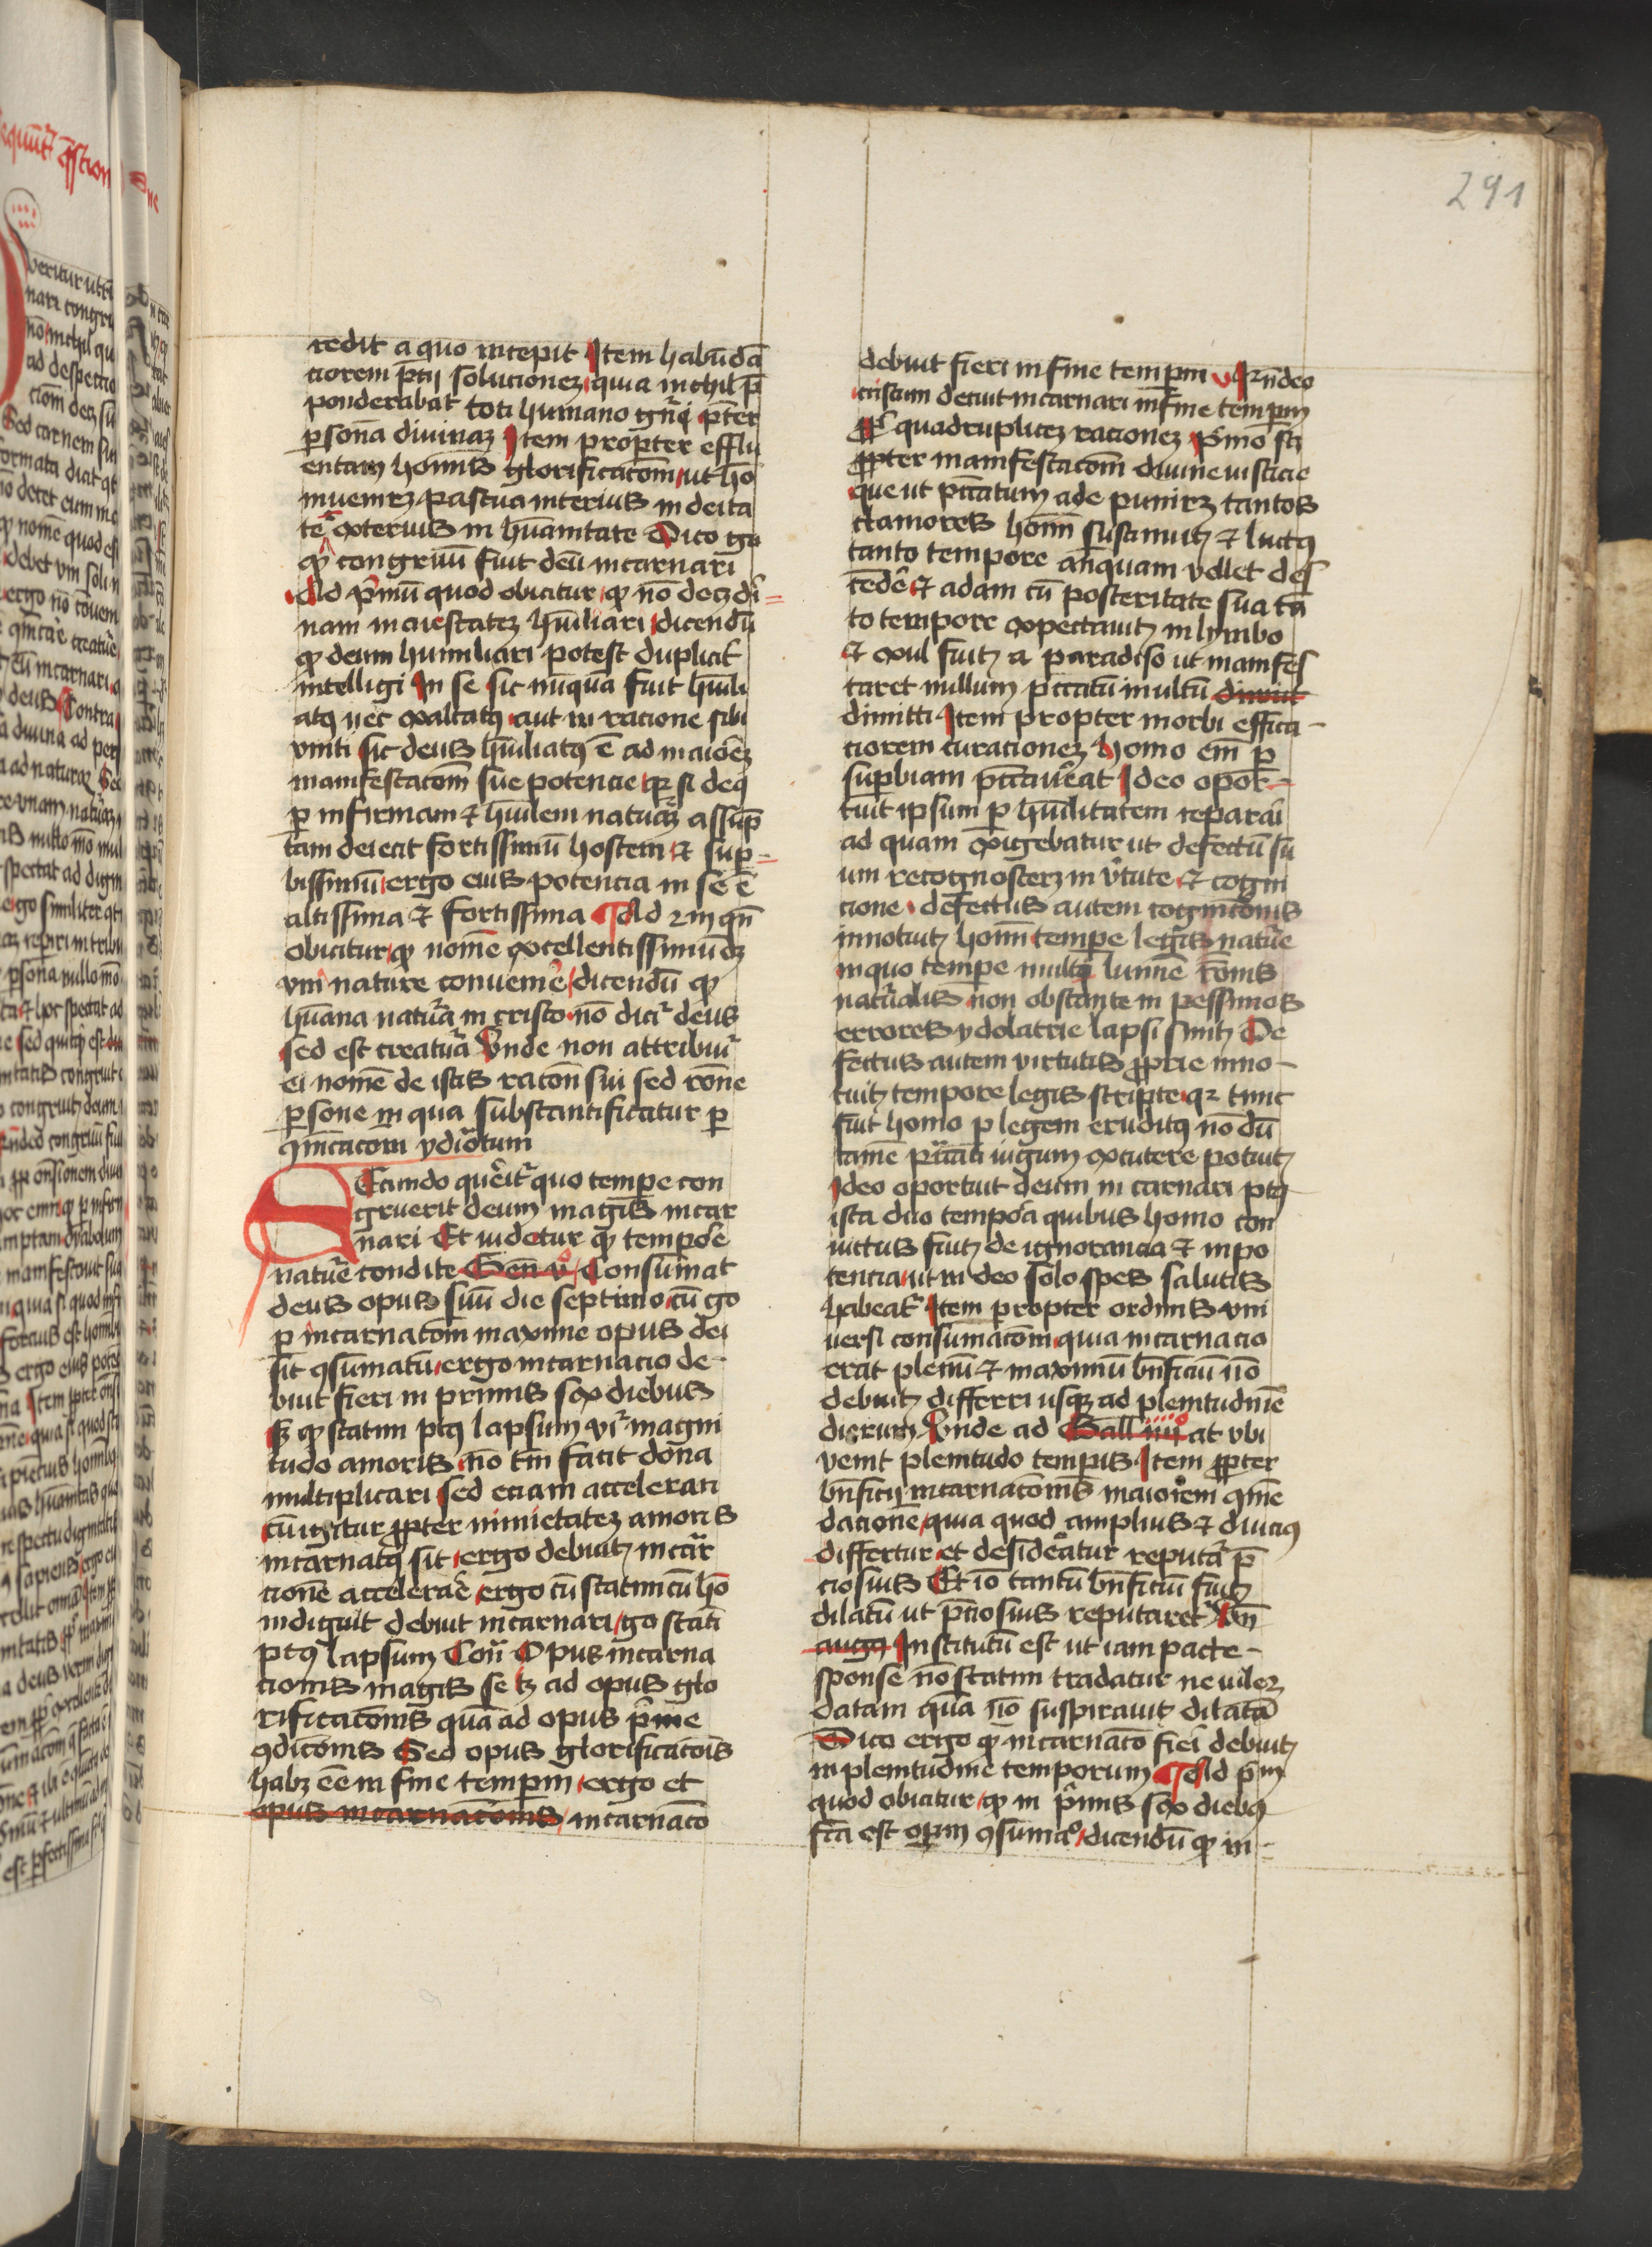 291
redit a quo incepit Item habūdā
ciorem p̄cij solucionez quia nichil p̄
ponderabat toti humano gn̄i p̄ter
ꝑsonā diuinaꝫ Item propter efflu
entem hom̄is glorificacōm ut hō
inueniꝫ pascua interius in deita
te exterius in hūanitate Dico gͦ
ꝙ congruū fuit deū incarnari
Ad p̄mū quod obicitur ꝙ nō decꝫ di
nam maiestateꝫ hūiliari dicendū
ꝙ deum humiliari potest duplicit̄
intelligi In se sic nūquā fuit hūili
atꝯ nec exaltatꝯ aut in racione sibi
vniti sic deus hūiliatꝯ ē ad maiorē
manifestacōm sue potencie qꝛ si deꝯ
ꝑ infirmam et hūilem naturā assūp
tam deiecit fortissimū hostem et suꝑ
bissimū ergo eius potencia in se ē
altissima et fortissima Ad 2m qn̄
obicitur ꝙ nomē excellentissimū deꝫ
vni nature conuenire dicendū ꝙ
hūana natura in cristo nō dicit̄ deus
sed est creatura Vnde non attribuit̄
ei nomē de istis racōn sui sed rōne
ꝑsone in qua substantificatur ꝑ
ꝯm̄icacōm ydiotum
Secundo querit̄ quo tempe con
gruerit deum magis incar
nari Et uidetur ꝙ tempore
nature condite Gen̄ ii Consūmat
deus opus suū die septimo cū gͦ
ꝑ incarnacōm maxime opus dei
sit ꝯsūmatū ergo incarnacio de
buit fieri in primis sex diebus
Iꝫ ꝙ statim ptꝯ lapsum vi magni
tudo amoris nō tm̄ facit dona
multiplicari sed etiam accelerari
cū igitur ꝓpter nimietateꝫ amoris
incarnatꝯ sit ergo debuit incar
cionē accelerare ergo cū statim cū hō
indiguit debuit incarnari gͦ stati
ptꝯ lapsum Con̄ Opus incarna
cionis magis se hꝫ ad opus glo
rificacōnis quā ad opus prime
ꝯdicōnis Sed opus glorificacōis
habꝫ eē in fine temꝑm ergo et
opus incarnacōnis incarnacō
debuit fieri in fine temꝑm Rn̄deo
cristum decuit incarnari in fine temꝑm
ꝓpͭ quadruplicem racionez Primo sꝫ
ꝓpter manifestacōm diuine iusticie
que ut pctatum ade punirꝫ tantos
clamores hom̄ sustinuit et luctꝯ
tanto tempore anquam vellet des
cēdē et adam cū posteritate sua tā
to tempore expectauit in lymbo
et exul fuit a paradiso ut manifes
taret nullum pctatū inultū dimit
dimitti Item propter morbi effica
ciorem curacionez Homo em̄ ꝑ
suꝑbiam pctauerat Ideo opor
tuit ipsum ꝑ hūilitatem reparari
ad quam exigebatur ut defectū su
um recognosceꝫ in vtute et cogni
cione defectus autem cognicōnis
innotuit hom̄ tempe legis nature
in quo tempe multi lumē rōnis
naturalis non obstante in pessimos
errores ydolatrie lapsi sunt De
fectus autem virtutis ꝓprie inno
tuit tempore legis scripte qꝛ tunc
fuit homo ꝑ legem eruditꝯ nō dū
tamē pctati iugum excutere potuit
Ideo oportuit deum incarnari ptꝯ
ista duo tempora quibus homo con
uictus fuit de ignorancia et inpo
tencia ut in deo solo spes salutis
habeat̄ Item propter ordinis vni
uersi consūmacōm quia incarnacio
erat plenū et maximū bn̄ficiū nō
debuit differri usqꝫ ad plenitudinē
dierum Vnde ad Gall iiij at vbi
venit plenitudo temꝑis Item ꝓpter
bn̄ficij incarnacōnis maiorem ꝯmē
dacionē quia quod amplius et diucius
differtur et desideratur reputat̄ p̄
ciosius Et iō tantū bn̄ficiū fuit
dilatū ut p̄ciosius reputaret̄ Vn̄
augꝯ Institutū est ut iam pacte
sponse nō statim tradatur ne vileꝫ
datam quā nō suspirauit dilatā
Dico ergo ꝙ incarnacō fieri debuit
in plenitudine temporum Ad p̄m
quod obicitur ꝙ in p̄mis sex diebꝯ
fcā est oꝑm ꝯsūmaͦ dicendū ꝙ in